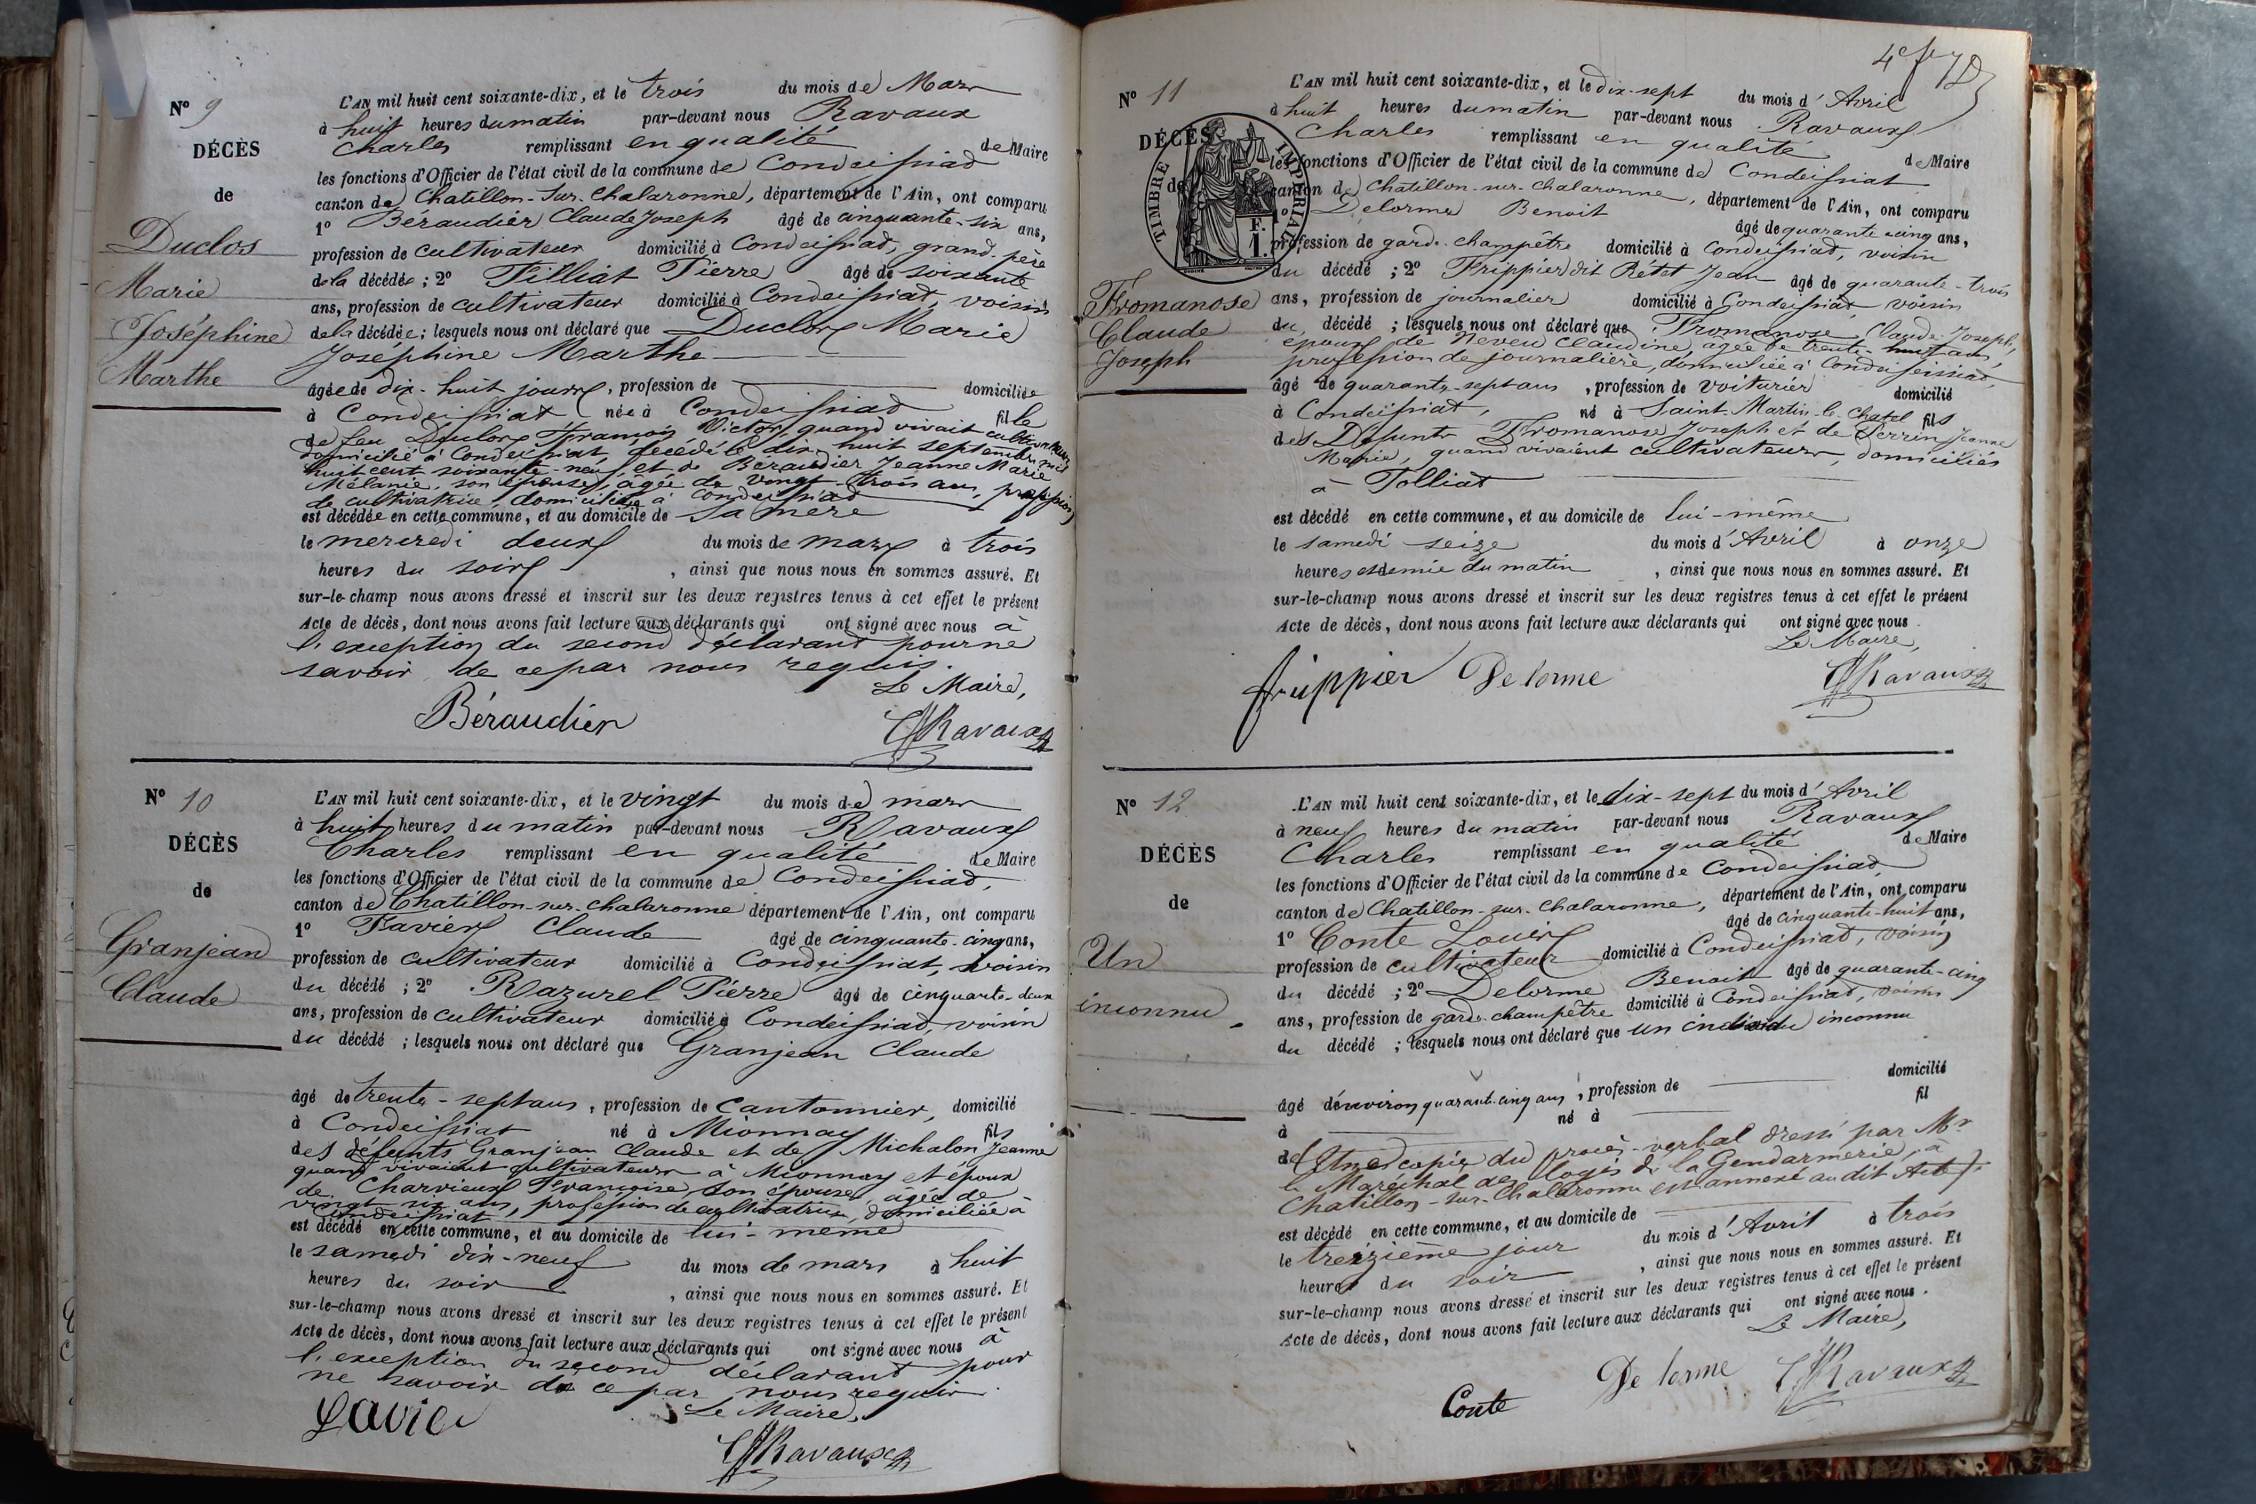 N° 9
DÉCÈS
de
Duclos
Marie
Joséphine
Marthe
L'AN mil huit cent soixante-dix, et le trois du mois de Mars
à huit heures du matin par-devant nous Ravaux
Charles remplissant en qualité de Maire
les fonctions d'Officier de l'état civil de la commune de Condeissiat
canton de Chatillon-sur-Chalaronne, département de l'Ain, ont comparu
1° Béraudier Claude Joseph âgé de cinquante-six ans,
profession de cultivateur domicilié à Condeissiat, grand-père
de la décédée ; 2° Tilliat Pierre âgé de soixante
ans, profession de cultivateur domicilié à Condeissiat, voisin
de la décédée ; lesquels nous ont déclaré que Duclos Marie
Joséphine Marthe
âgée de dix-huit jours, profession de domiciliée
à Condeissiat née à Condeissiat fille
de feu Duclos François Victor, quand vivait cultivateur
domicilié à Condeissiat, décédé le dix-huit septembre mil
huit cent soixante-neuf et de Beraudier Jeanne Marie
Mélanie, son épouse, âgée de vingt-trois ans, profession
de cultivatrice, domiciliée à Condeissiat
est décédée en cette commune, et au domicile de sa mère
le mercredi deux du mois de mars à trois
heures du soir, ainsi que nous nous en sommes assuré. Et
sur-le-champ nous avons dressé et inscrit sur les deux registres tenus à cet effet le présent
Acte de décès, dont nous avons fait lecture aux déclarants qui ont signé avec nous à
l'exception du second déclarant pour ne
savoir de ce par nous requis.
Le Maire,
Béraudier
Ravaux
N° 10
DÉCÈS
de
Granjean
Claude
L'AN mil huit cent soixante-dix, et le vingt du mois de mars
à huit heures du matin par-devant nous Ravaux
Charles remplissant en qualité de Maire
les fonctions d'Officier de l'état civil de la commune de Condeissiat,
canton de Chatillon-sur-Chalaronne département de l'Ain, ont comparu
1° Favier Claude âgé de cinquante-cinq ans,
profession de cultivateur domicilié à Condeissiat, voisin
du décédé ; 2° Razurel Pierre âgé de cinquante-deux
ans, profession de cultivateur domicilié à Condeissiat, voisin
du décédé ; lesquels nous ont déclaré que Granjean Claude
âgé de trente-sept ans, profession de Cantonnier, domicilié
à Condeissiat né à Mionnay fils
des défunts Granjean Claude et de Michalon Jeanne
quand vivaient cultivateurs à Mionnay et époux
de Charvieux Françoise, son épouse, âgée de
vingt-six ans, profession de cultivatrice, domiciliée à
Condeissiat
est décédé en cette commune, et au domicile de lui-même
le samedi dix-neuf du mois de mars à huit
heures du soir, ainsi que nous nous en sommes assuré. Et
sur-le-champ nous avons dressé et inscrit sur les deux registres tenus à cet effet le présent
Acte de décès, dont nous avons fait lecture aux déclarants qui ont signé avec nous à
l'exception du second déclarant pour
ne savoir de ce par nous requis.
Le Maire,
Favier
Ravaux
N° 11
DÉCÈS
de
TIMBRE IMPÉRIAL
1 F.
Fromanose
Claude
Joseph
L'AN mil huit cent soixante-dix, et le dix-sept du mois d'Avril
à huit heures du matin par-devant nous Ravaux
Charles remplissant en qualité de Maire
les fonctions d'Officier de l'état civil de la commune de Condeissiat
canton de Chatillon-sur-Chalaronne, département de l'Ain, ont comparu
1° Delorme Benoit âgé de quarante-cinq ans,
profession de garde-champêtre domicilié à Condeissiat, voisin
du décédé ; 2° Frippier dit Petit Jean âgé de quarante-trois
ans, profession de journalier domicilié à Condeissiat voisin
du décédé ; lesquels nous ont déclaré que Fromanose Claude Joseph,
époux de Neveu Claudine âgée de trente-huit ans,
profession de journalière, domiciliée à Condeissiat,
âgé de quarante-sept ans, profession de voiturier domicilié
à Condeissiat, né à Saint-Martin-le-Chatel fils
des Défunts Fromanose Joseph et de Perrin Jeanne
Marie, quand vivaient cultivateurs, domiciliés
à Polliat
est décédé en cette commune, et au domicile de lui-même
le samedi seize du mois d'Avril à onze
heures et demie du matin, ainsi que nous nous en sommes assuré. Et
sur-le-champ nous avons dressé et inscrit sur les deux registres tenus à cet effet le présent
Acte de décès, dont nous avons fait lecture aux déclarants qui ont signé avec nous.
Le Maire,
frippier Delorme
Ravaux
N° 12
DÉCÈS
de
Un
inconnu
L'AN mil huit cent soixante-dix, et le dix-sept du mois d'Avril
à neuf heures du matin par-devant nous Ravaux
Charles remplissant en qualité de Maire
les fonctions d'Officier de l'état civil de la commune de Condeissiat,
canton de Chatillon-sur-Chalaronne, département de l'Ain, ont comparu
1° Conte Louis âgé de cinquante-huit ans,
profession de cultivateur domicilié à Condeissiat, voisin
du décédé ; 2° Delorme Benoit âgé de quarante-cinq
ans, profession de garde-champêtre domicilié à Condeissiat, voisin
du décédé ; lesquels nous ont déclaré que un individu inconnu
âgé d'environ quarante-cinq ans, profession de domicilié
à né à fil
de (Une copie du procès-verbal dressé par Mr
le Maréchal des logis de la Gendarmerie, à
Chatillon-sur-Chalaronne est annexé au dit Acte).
est décédé en cette commune, et au domicile de
le treizième jour du mois d'Avril à trois
heures du soir, ainsi que nous nous en sommes assuré. Et
sur-le-champ nous avons dressé et inscrit sur les deux registres tenus à cet effet le présent
Acte de décès, dont nous avons fait lecture aux déclarants qui ont signé avec nous.
Le Maire,
Conte Delorme Ravaux